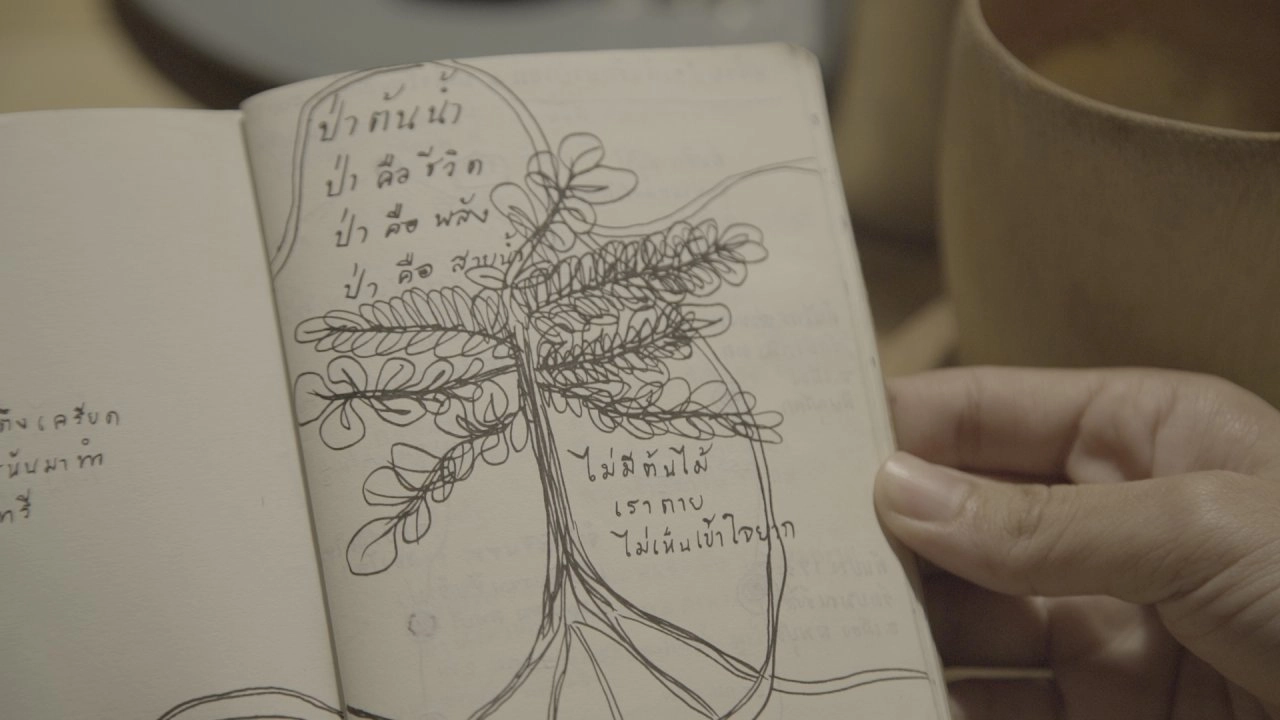 เครียด
นั้นมาทำ
ป่าต้นน้ำ
ป่า คือ ชีวิต
ป่า คือ พลัง
ป่า คือ สายน้ำ
ไม่มีต้นไม้
เราตาย
ไม่เห็นเข้าใจยาก